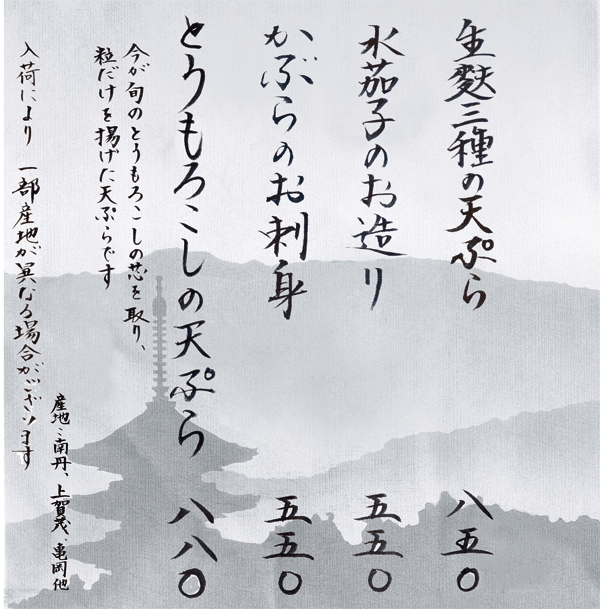 生麩三種の天ぷら 八五〇
水茄子のお造り 五五〇
かぶらのお刺身 五五〇
とうもろこしの天ぷら 八八〇
今が旬のとうもろこしの芯を取り、
粒だけを揚げた天ぷらです
産地:南丹、上賀茂、亀岡他
入荷により 一部産地が異なる場合がございます